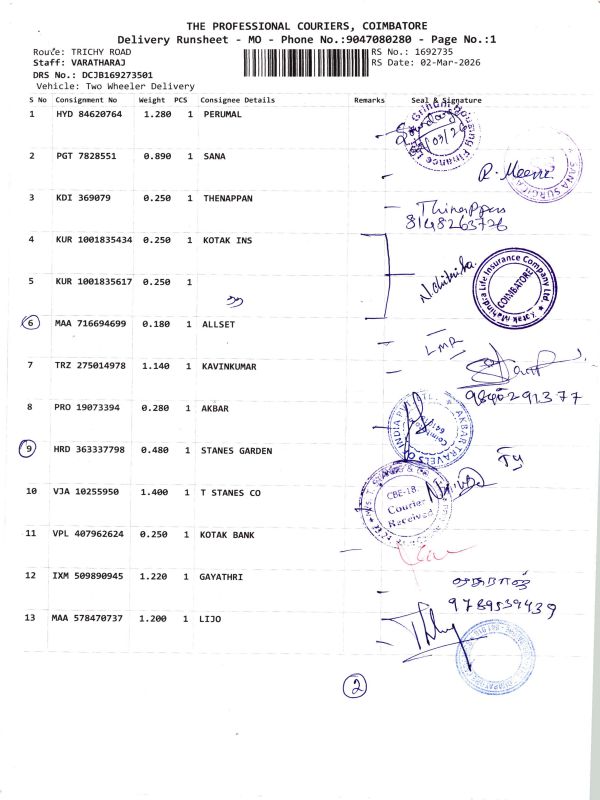 THE PROFESSIONAL COURIERS, COIMBATORE
Delivery Runsheet - MO - Phone No.:9047080280 - Page No.:1
Route: TRICHY ROAD RS No.: 1692735
Staff: VARATHARAJ RS Date: 02-Mar-2026
DRS No.: DCJB169273501
Vehicle: Two Wheeler Delivery
S No Consignment No Weight PCS Consignee Details Remarks Seal & Signature
1 HYD 84620764 1.280 1 PERUMAL
2 PGT 7828551 0.890 1 SANA
R. Meena
SANA SURGICA
3 KDI 369079 0.250 1 THENAPPAN
Thinappan
8148263726
4 KUR 1001835434 0.250 1 KOTAK INS
Kotak Mahindra Life Insurance Company Ltd
COIMBATORE
5 KUR 1001835617 0.250 1
6 MAA 716694699 0.180 1 ALLSET
LMR
7 TRZ 275014978 1.140 1 KAVINKUMAR
9840291377
8 PRO 19073394 0.280 1 AKBAR
AKBAR TRAVELS OF INDIA
9 HRD 363337798 0.480 1 STANES GARDEN
10 VJA 10255950 1.400 1 T STANES CO
CBE-18.
Courier
Received
11 VPL 407962624 0.250 1 KOTAK BANK
12 IXM 509890945 1.220 1 GAYATHRI
வரதராஜ்
9789539439
13 MAA 578470737 1.200 1 LIJO
2